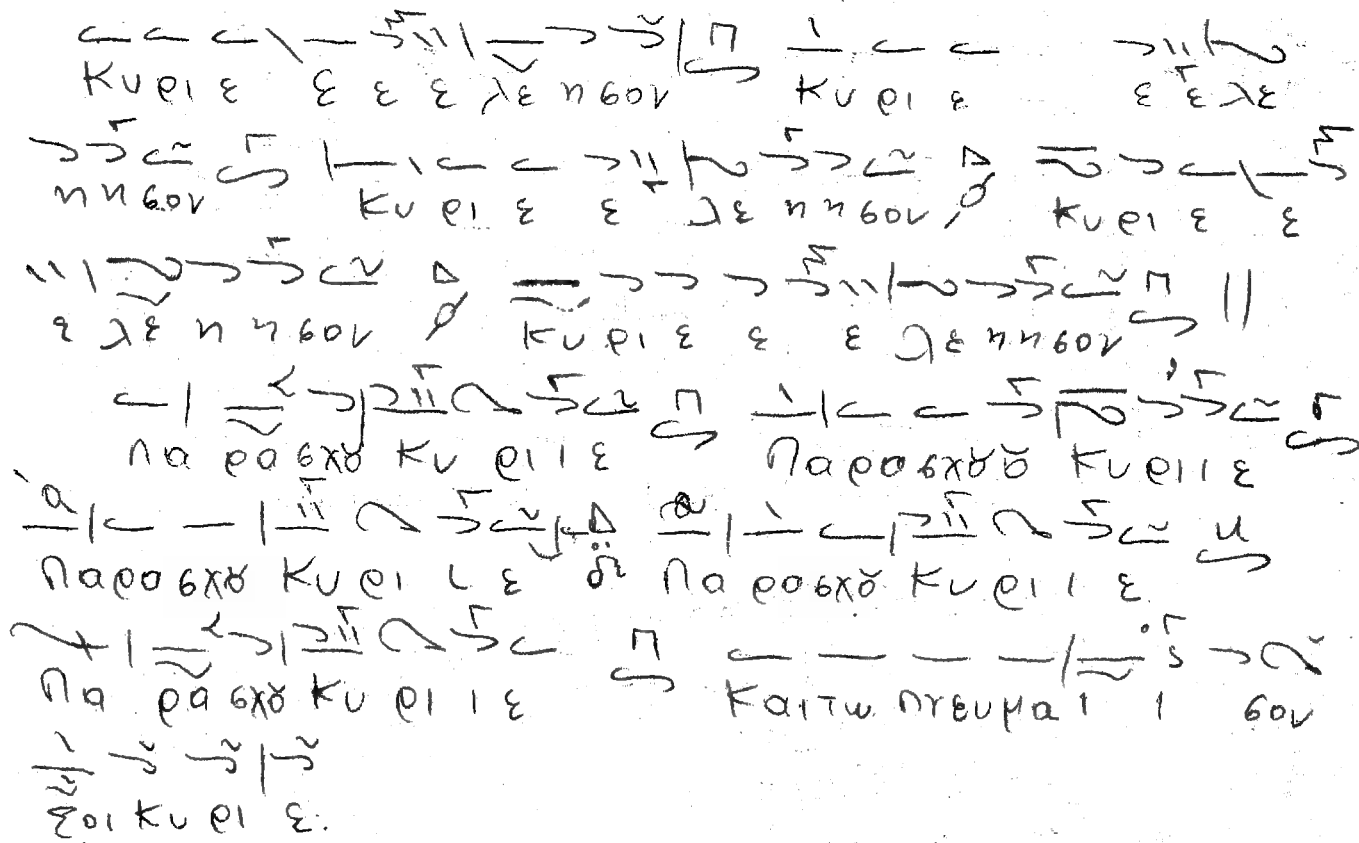 Κυρι ε ε ε ε λε η σον Κυ ρι ε ε ε λε
η η σον Κυ ρι ε ε λε η η σον Κυ ρι ε ε
ε λε η η σον Κυ ρι ε ε ε λε η η σον
Πα ρα σχȣ Κυ ρι ι ε Παρασχȣ ȣ Κυρι ι ε
Παρασχȣ Κυ ρι ι ε Πα ρασχȣ Κυ ρι ι ε
Πα ρα σχȣ Κυ ρι ι ε Και τω πνευμα ι ι σου
Σοι Κυ ρι ε.